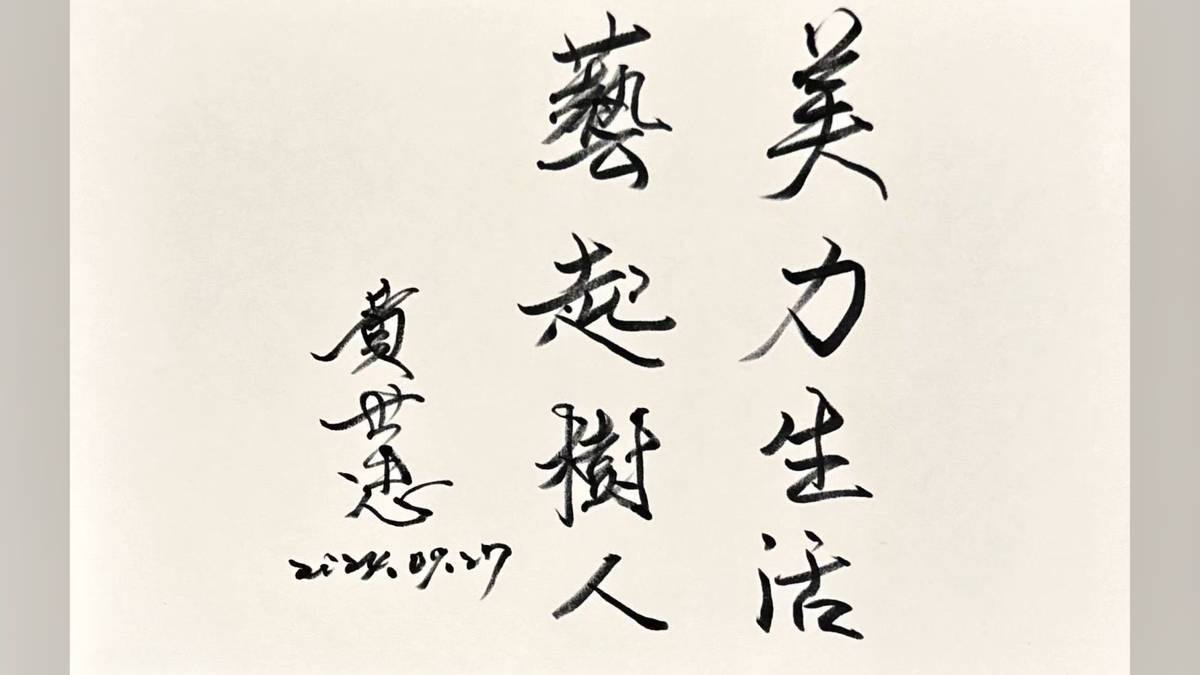 美力生活
藝起樹人
世
2024.09.27